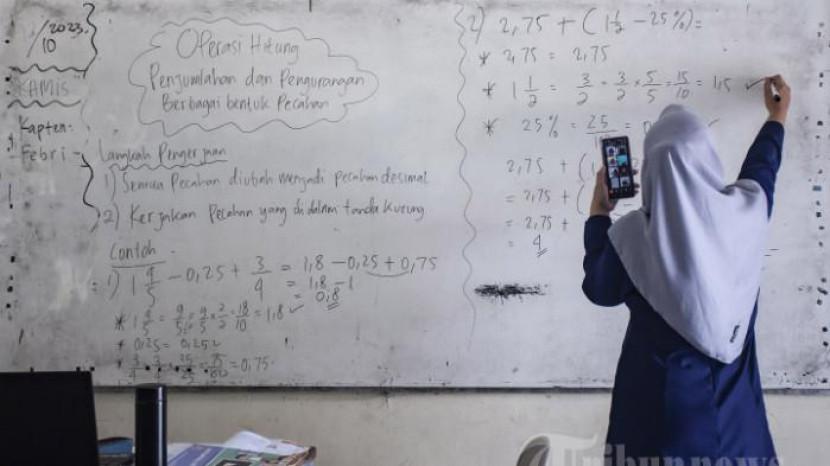 /2023.
10
KAMIS
Kapten:
Febri
Operasi Hitung
Penjumlahan dan Pengurangan
Berbagai bentuk Pecahan
Langkah Pengerjaan
1) Semua Pecahan diubah menjadi pecahan desimal
2) Kerjakan Pecahan yang di dalam tanda kurung
Contoh
1) 1 4/5 − 0,25 + 3/4 = 1,8 − 0,25 + 0,75
= 1,8 − 1
= 0,8
* 1 4/5 = 9/5 = 9/5 × 2/2 = 18/10 = 1,8 ✓
* 0,25 = 0,25
* 3/4 = 0,75
2) 2,75 + (1 1/2 − 25%) =
* 2,75 = 2,75
* 1 1/2 = 3/2 = 3/2 × 5/5 = 15/10 = 1,5 ✓
* 25% = 25 =
2,75 + (
= 2,75 + (
= 2,75 +
= 4
Tribunnews